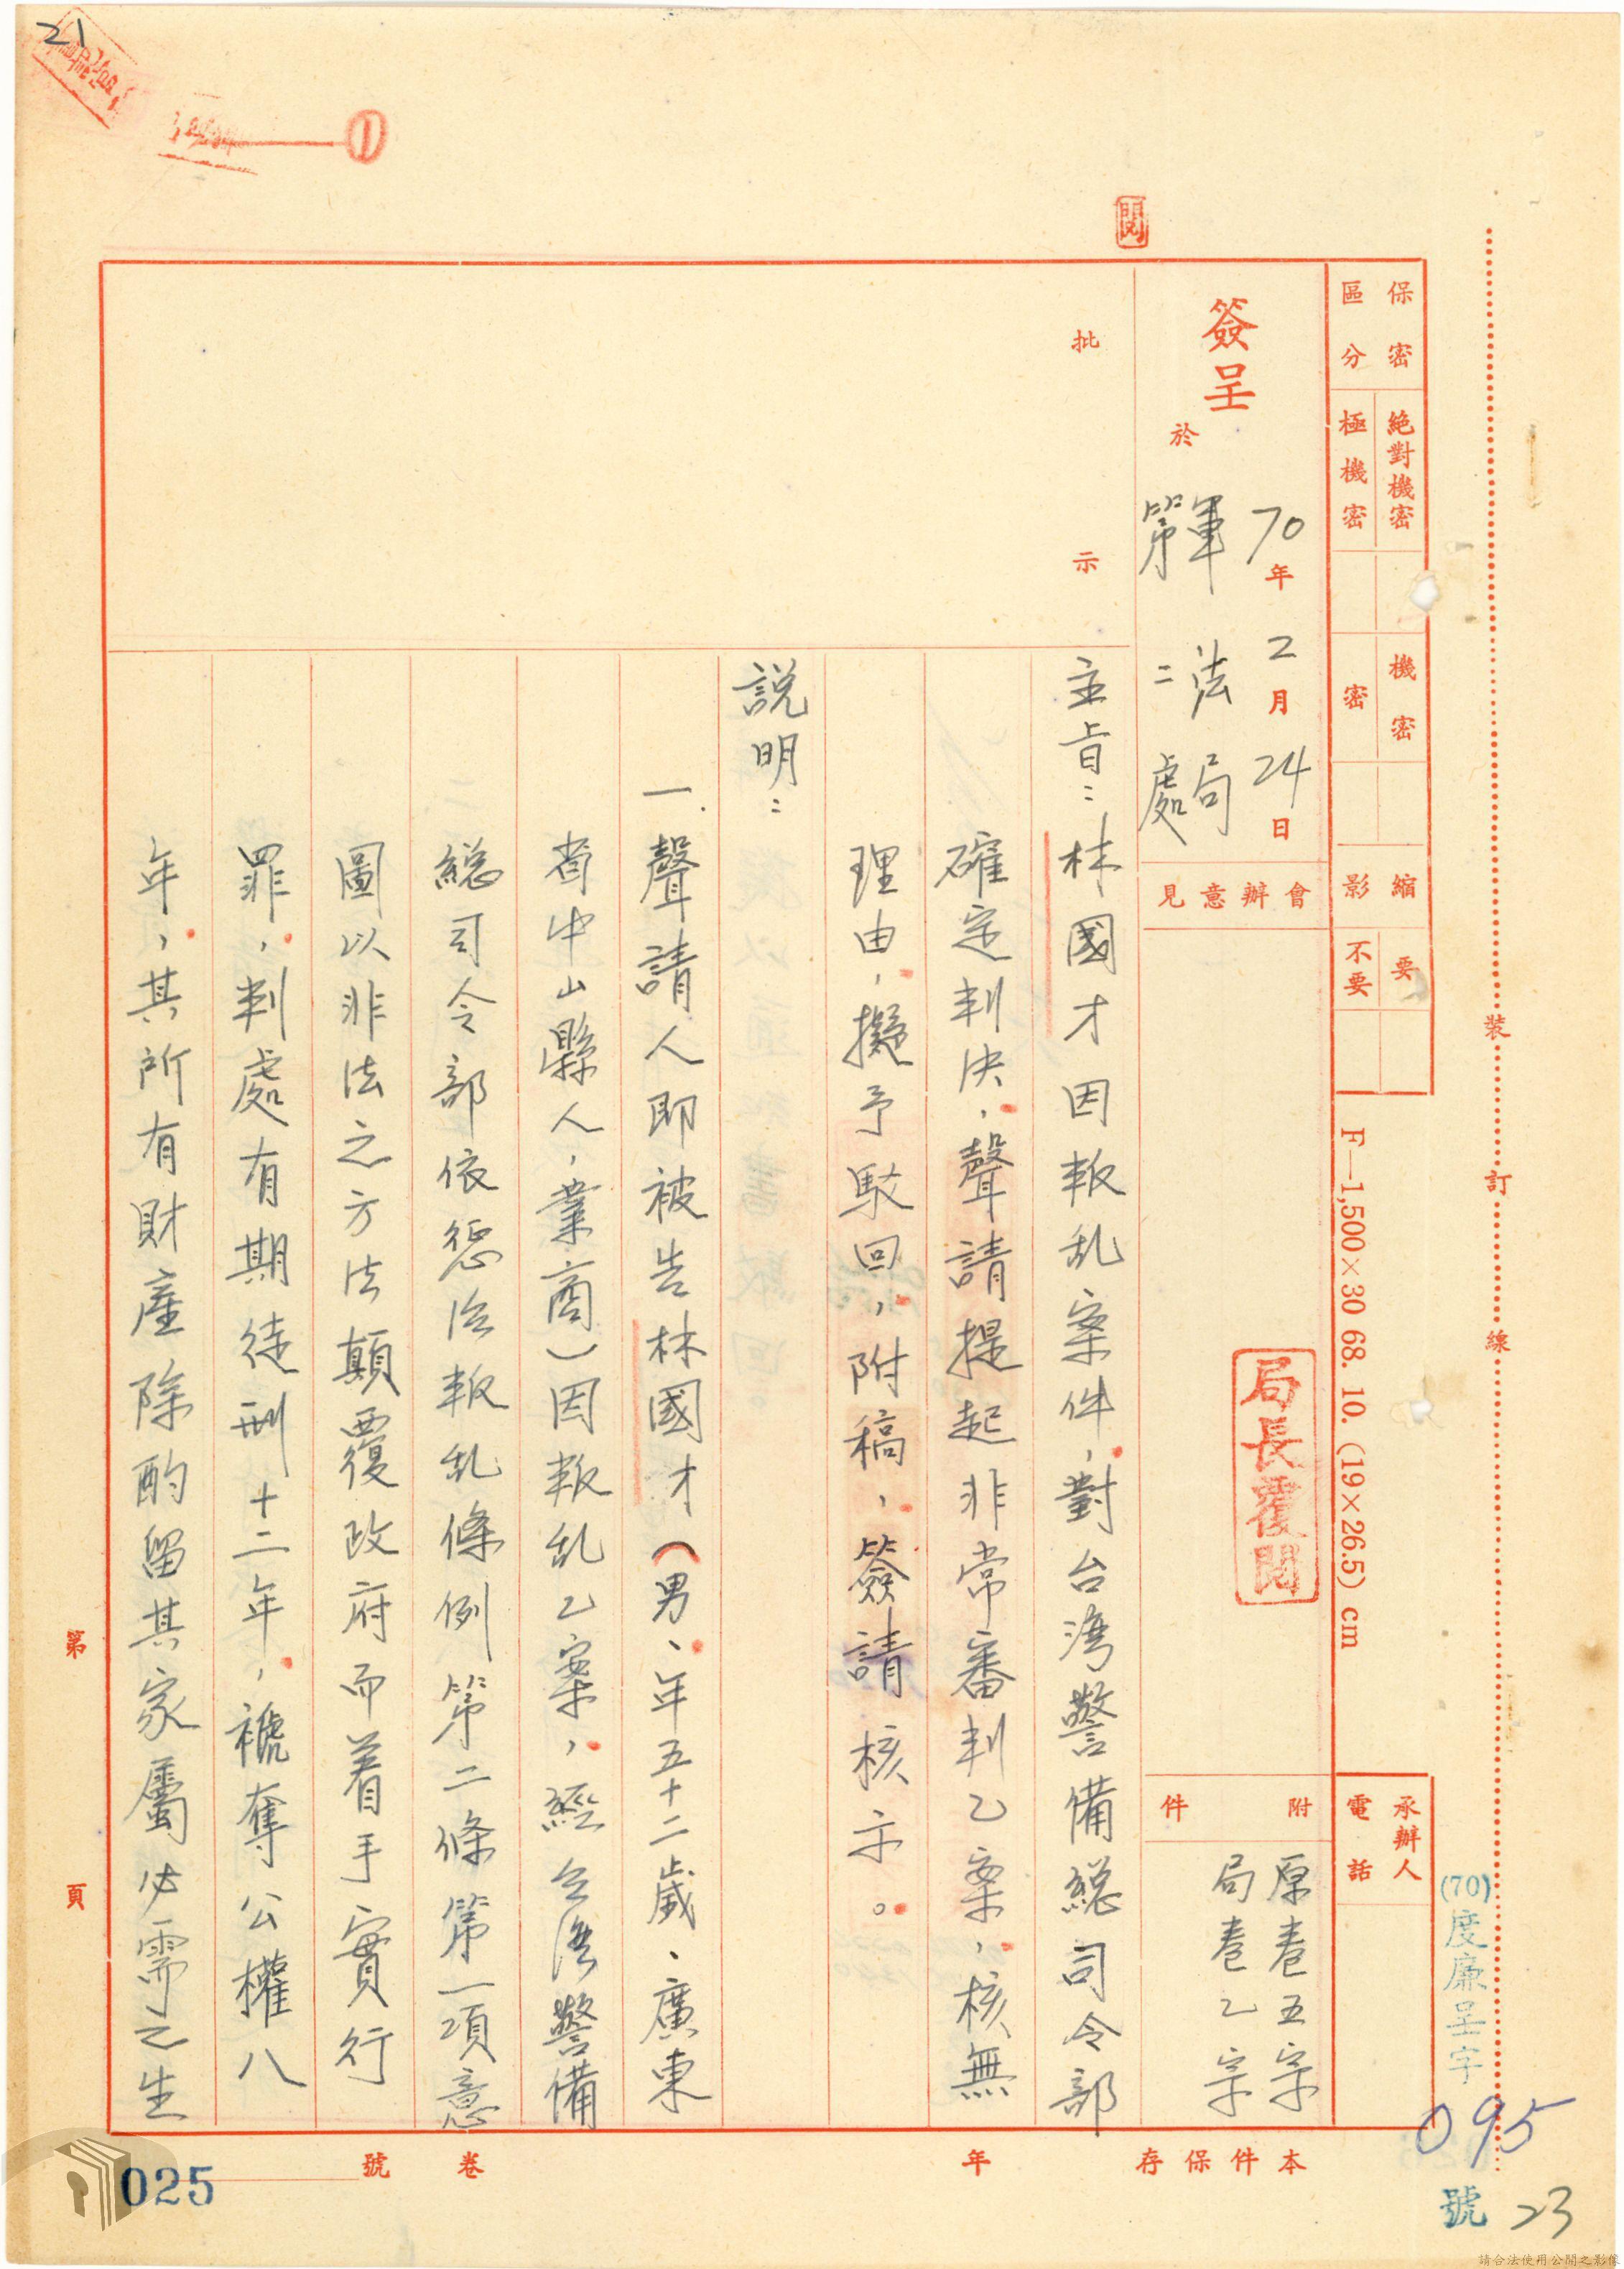 21
①
閱
保密區分
絕對機密
極機密
機密
密
縮影
要
不要
F—1,500×30 68. 10. (19×26.5) cm
承辦人
電話
裝
訂
線
(70)度廉呈字
095
號
23
簽呈
於
70年2月24日
軍法局
第二處
會辦意見
局長覆閱
附件
原卷五宗
局卷乙宗
批示
主旨：林國才因叛乱案件，對台湾警備総司令部
確定判決，聲請提起非常審判乙案，核無
理由，擬予駁回，附稿，簽請核示。
説明：
一、聲請人即被告林國才（男、年五十二歲、廣東
省中山縣人，業商）因叛乱乙案，經台湾警備
総司令部依惩治叛乱條例第二條第一項意
圖以非法之方法顛覆政府而着手實行
罪，判處有期徒刑十二年，褫奪公權八
年，其所有財產除酌留其家屬必需之生
第
頁
本件保存
年
卷
號
025
請合法使用公開之影像